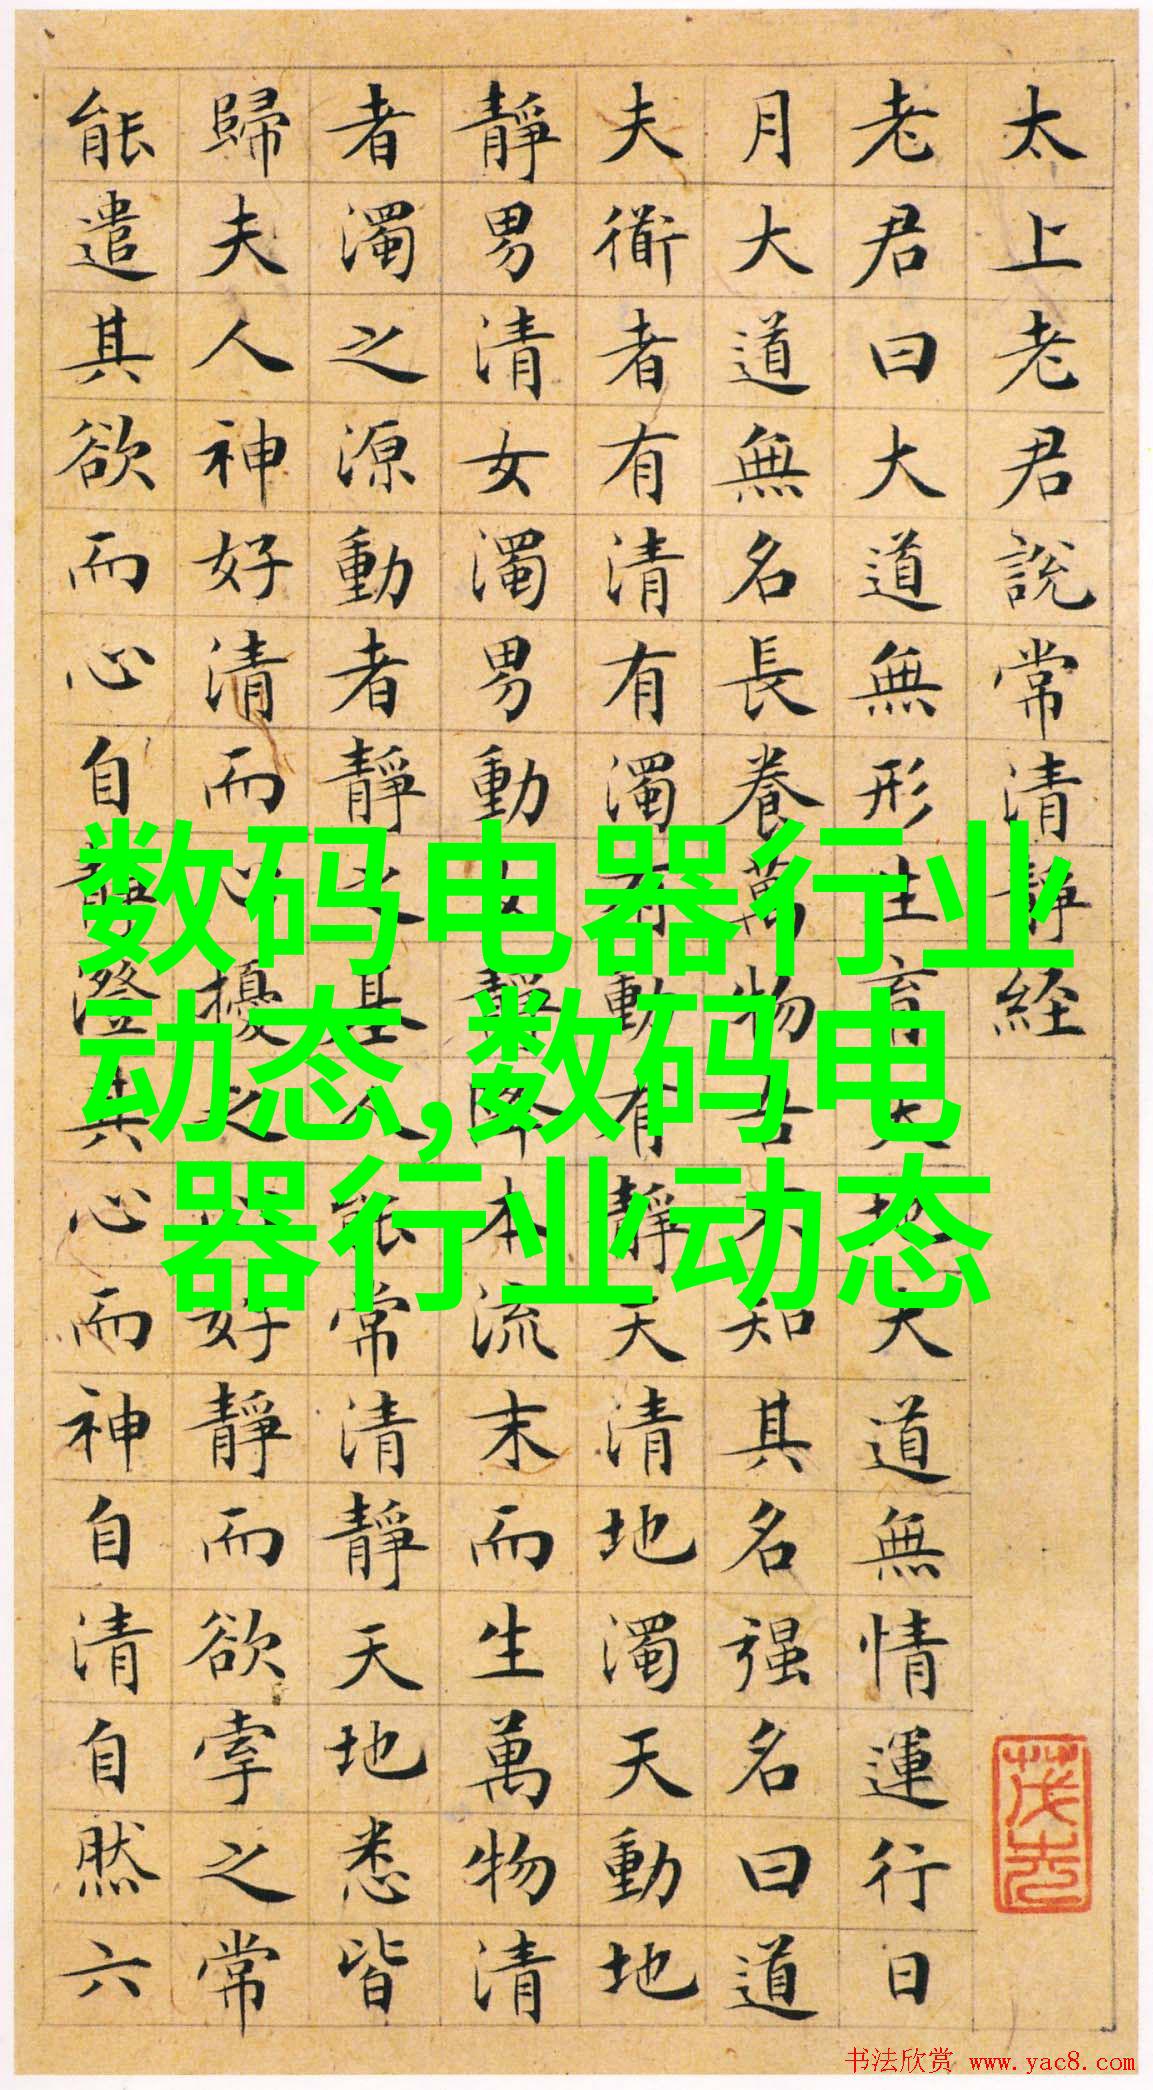 太上老君說常清靜経
老君曰大道無形生育天地大道無情運行日
月大道無名長養萬物吾不知其名强名曰道
夫衜者有清有濁有動有靜天清地濁天動地
靜男清女濁男動女靜降本流末而生萬物清
者濁之源動者靜之基人能常清靜天地悉皆
歸夫人神好清而心擾之心好靜而欲牽之常
能遣其欲而心自靜澄其心而神自清自然六
数码电器行业
动态,数码电
器行业动态
书法欣赏 www.yac8.com